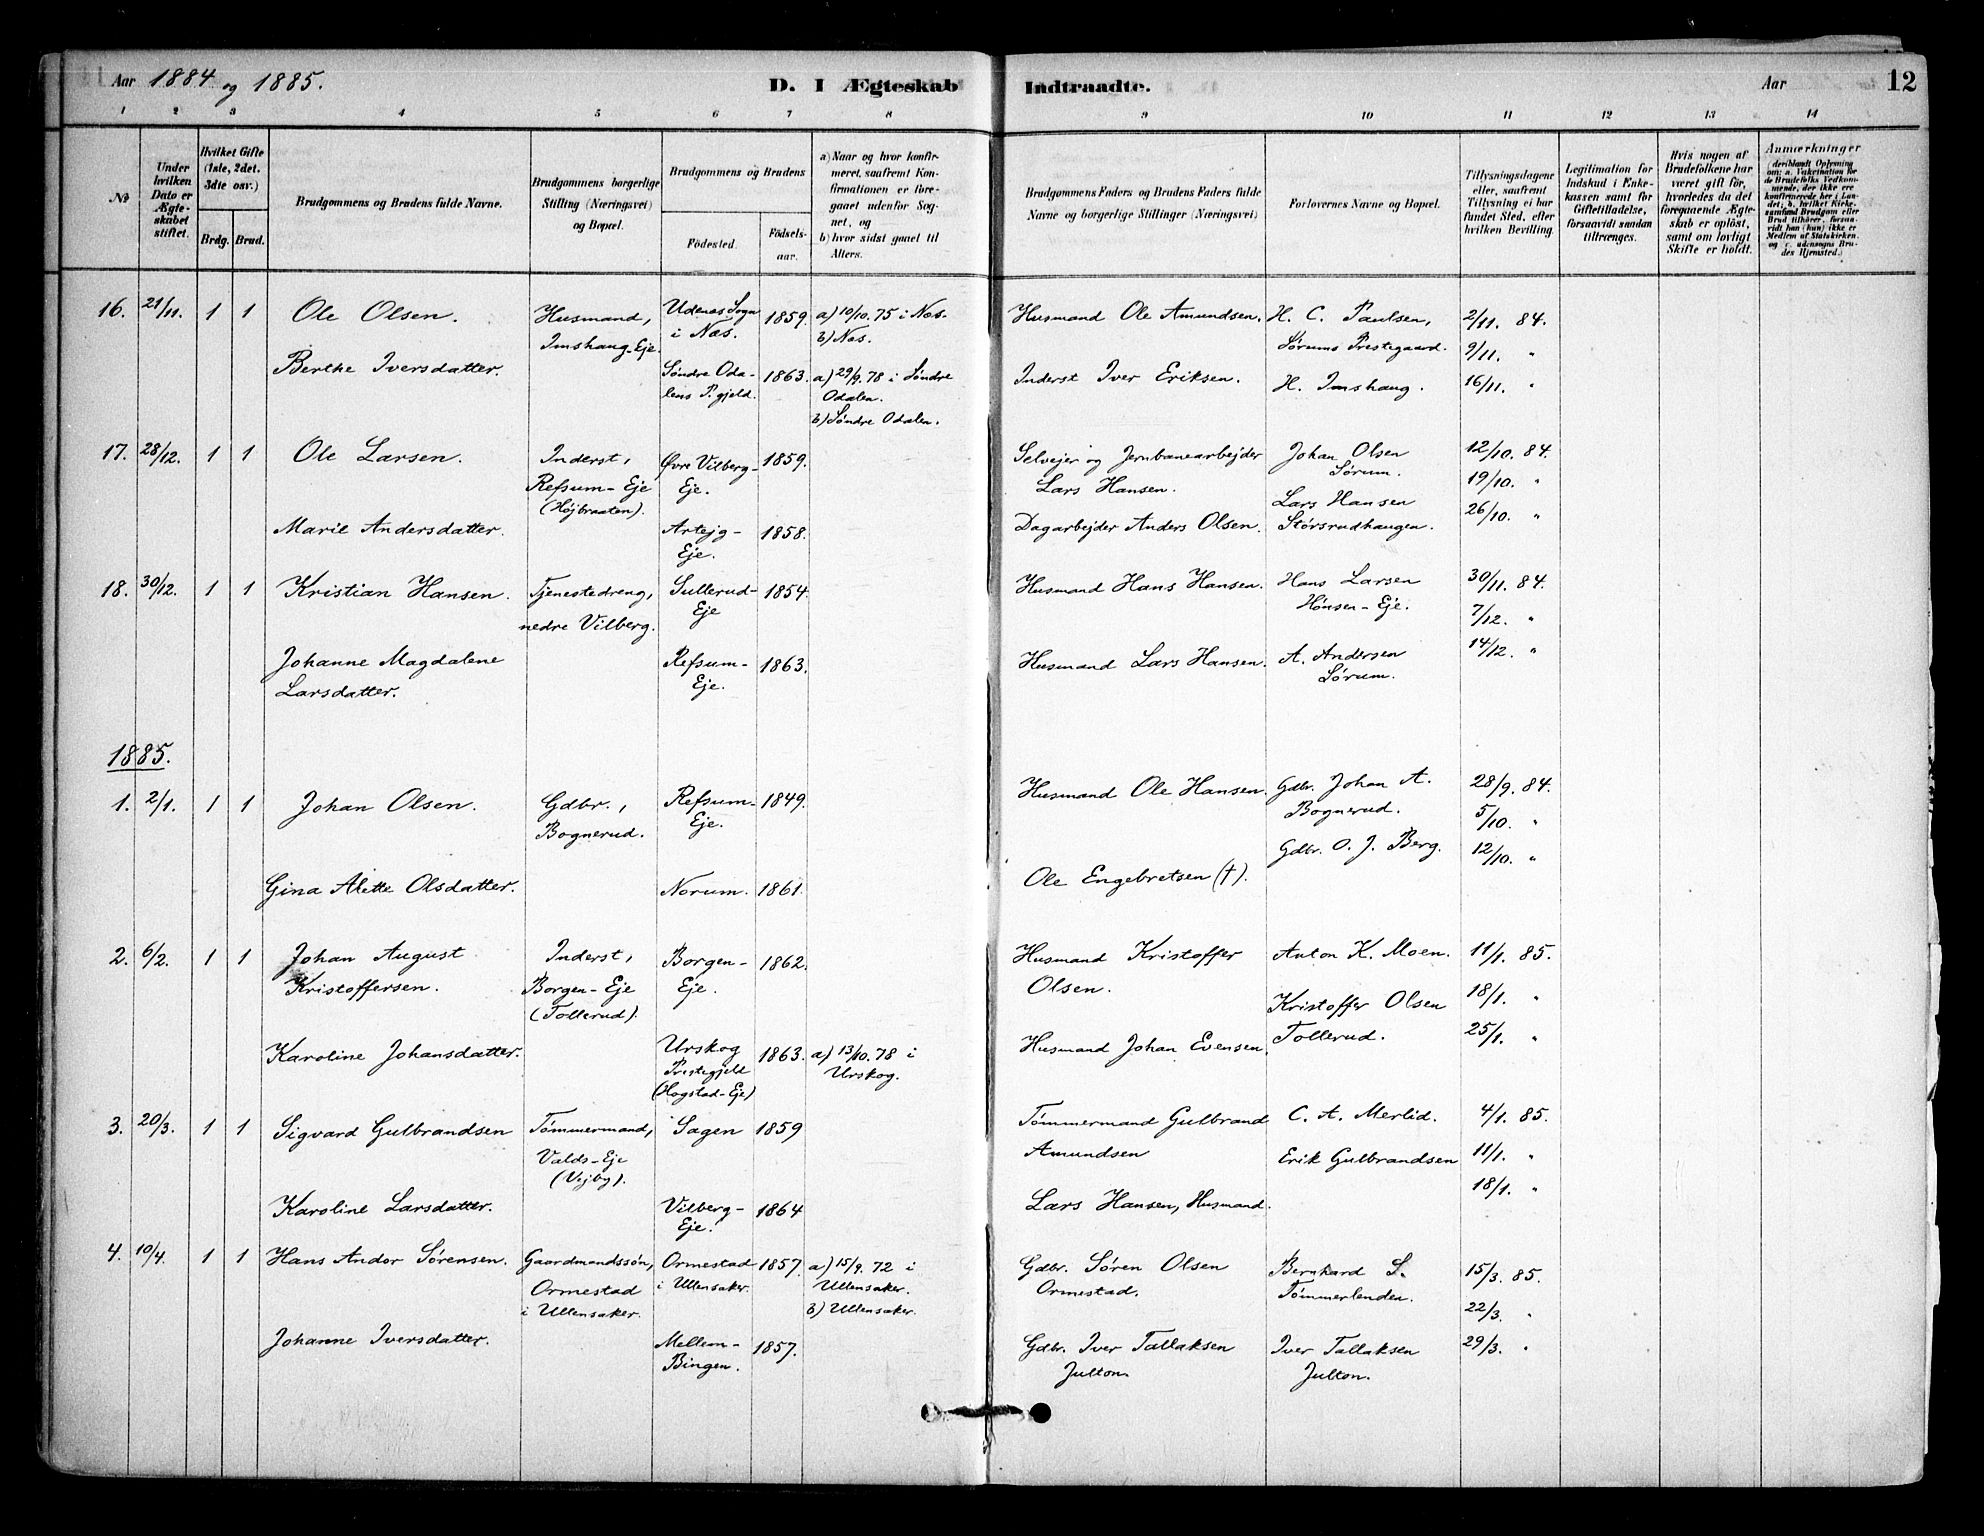 Aar 1884 og 1885.
D. I Ægteskab Indtraadte.
Aar
12
1 2 3 4 5 6 7 8 9 10 11 12 13 14
№
Under hvilken Dato er Ægteskabet stiftet.
Hvilket Gifte (1ste, 2det. 3die osv.)
Brdg. Brud.
Brudgommens og Brudens fulde Navne.
Brudgommens borgerlige Stilling (Næringsvei) og Bopæl.
Brudgommens og Brudens
Fødested.
Fødselsaar.
a) Naar og hvor konfirmeret, saafremt Konfirmationen er foregaaet udenfor Sognet, og
b) hvor sidst gaaet til Alters.
Brudgommens Faders og Brudens Faders fulde Navne og borgerlige Stillinger (Næringsvei)
Forlovernes Navne og Bopæl.
Tillysningsdagene eller, saafremt Tillysning ei har fundet Sted, efter hvilken Bevilling.
Legitimation for Indskud i Enkekassen samt for Giftetilladelse, forsaavidt saadan tiltrænges.
Hvis nogen af Brudefolkene har været gift før, hvorledes da det foregaaende Ægteskab er opløst, samt om lovligt Skifte er holdt.
Anmærkninger
16. 21/11. 1 1 Ole Olsen. Husmand, Imshaug-Eje. Udenes Sogn i Næs. 1859. a) 10/10. 75 i Næs. b) Næs. Husmand Ole Amundsen. H. C. Paulsen, Sørums Prestegaard. 2/11. 84. 9/11. "
Berthe Iversdatter. Søndre Odalens P.gjeld. 1863. a) 29/9. 78 i Søndre Odalen. b) Søndre Odalen. Inderst Iver Eriksen. H. Imshaug. 16/11. "
17. 28/12. 1 1 Ole Larsen. Inderst, Refsum-Eje (Højbraaten). Øvre Vilberg-Eje. 1859. Selvejer og Jernbanearbejder Lars Hansen. Johan Olsen Sørum. 12/10. 84. 19/10. "
Marie Andersdatter. Artejg-Eje. 1858. Dagarbejder Anders Olsen. Lars Hansen Størsrudhaugen. 26/10. "
18. 30/12. 1 1 Kristian Hansen. Tjenestedreng, nedre Vilberg. Sullerud-Eje 1854. Husmand Hans Hansen. Hans Larsen Hønsen-Eje. 30/11. 84. 7/12. "
Johanne Magdalene Larsdatter. Refsum-Eje. 1863. Husmand Lars Hansen. A. Andersen Sørum. 14/12. "
1885.
1. 2/1. 1 1 Johan Olsen. Gdbr., Bognerud. Refsum-Eje. 1849. Husmand Ole Hansen. Gdbr. Johan A. Bognerud. 28/9. 84. 5/10. "
Gina Alette Olsdatter. Norum. 1861. Ole Engebretsen (†). Gdbr. O. J. Berg. 12/10. "
2. 6/2. 1 1 Johan August Kristoffersen. Inderst, Borgen-Eje (Tollerud). Borgen-Eje. 1862. Husmand Kristoffer Olsen. Anton K. Moen. 11/1. 85. 18/1. "
Karoline Johansdatter. Urskog Prestegjeld (Hogstad-Eje) 1863. a) 13/10. 78 i Urskog. Husmand Johan Evensen. Kristoffer Olsen Tollerud. 25/1. "
3. 20/3. 1 1 Sigvard Gulbrandsen Tømmermand, Valds-Eje (Vejby). Sagen 1859 Tømmermand Gulbrand Amundsen C. A. Merlid. 4/1. 85. Erik Gulbrandsen 11/1. "
Karoline Larsdatter. Vilberg-Eje. 1864 Lars Hansen, Husmand. 18/1. "
4. 10/4. 1 1 Hans Andor Sørensen. Gaardmandssøn, Ormestad i Ullensaker. Ormestad i Ullensaker. 1857. a) 15/9. 72 i Ullensaker. b) Ullensaker. Gdbr. Søren Olsen Ormestad. Bernhard S. Tømmerlenden. 15/3. 85. 22/3. "
Johanne Iversdatter. Mellem-Bingen. 1857. Gdbr. Iver Tallaksen Julton. Iver Tallaksen Julton. 29/3. "